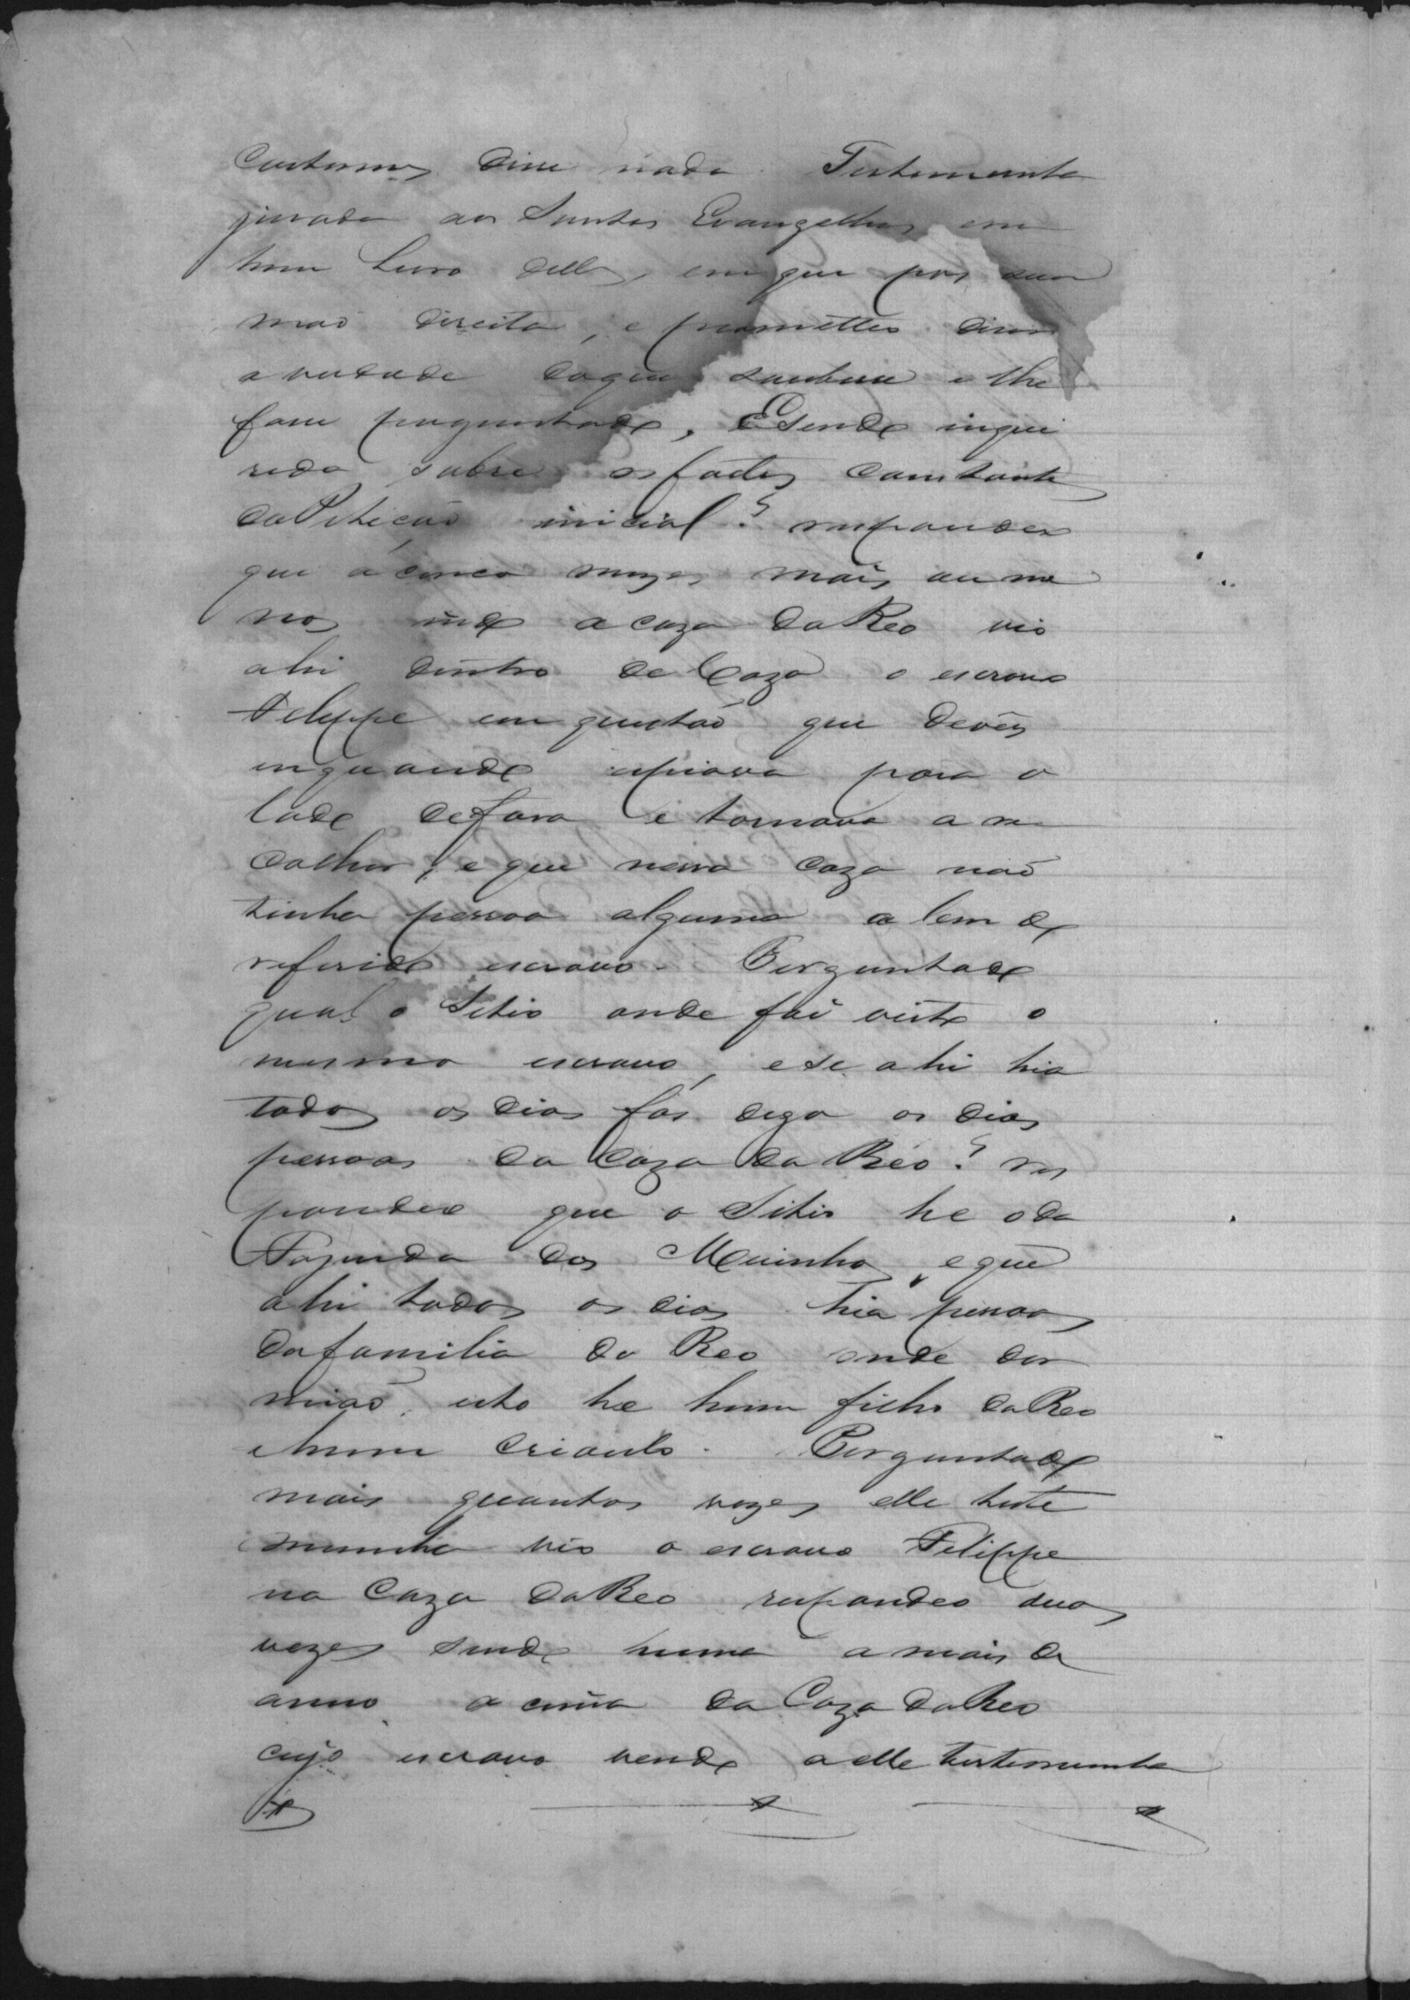 Custumes disse nada. Testemunha
jurada aos Santos Evangelhos em
hum Livro delles, em que pos sua
maõ direita, e prometteo diser
a verdade doque soubese e lhe
fose preguntado, Esendo inqui
rido sobre os factos constante
daPetiçaõ inicial? respondeo
que á cinco mezes mais ou me
nos indo a caza doReo vio
ahi dentro de Caza o escravo
Felippe em questaõ que devês
inquando espiava para o
lado defora e tornava a re
colher, e que nessa caza naõ
tinha pessoa alguma a lem do
referido escravo. Perguntado
qual o Sitio onde foi visto o
mesmo escravo, e se ahi hia
todos os dias fas digo os dias
pessoas da Caza do Reo? res
pondeo que o Sitio he o da
Fazenda dos Moinhos, e que
ahi todos os dias hia pessoas
dafamilia do Reo onde dor
miaõ, isto he hum filho doReo
ehum crioulo. Perguntado
mais quantas vezes elle teste
munha vio o escravo Felippe
na Caza doReo respondeo duas
vezes sendo huma a mais de
anno a cima da Caza doReo
cujo escravo vendo a elle testemunha